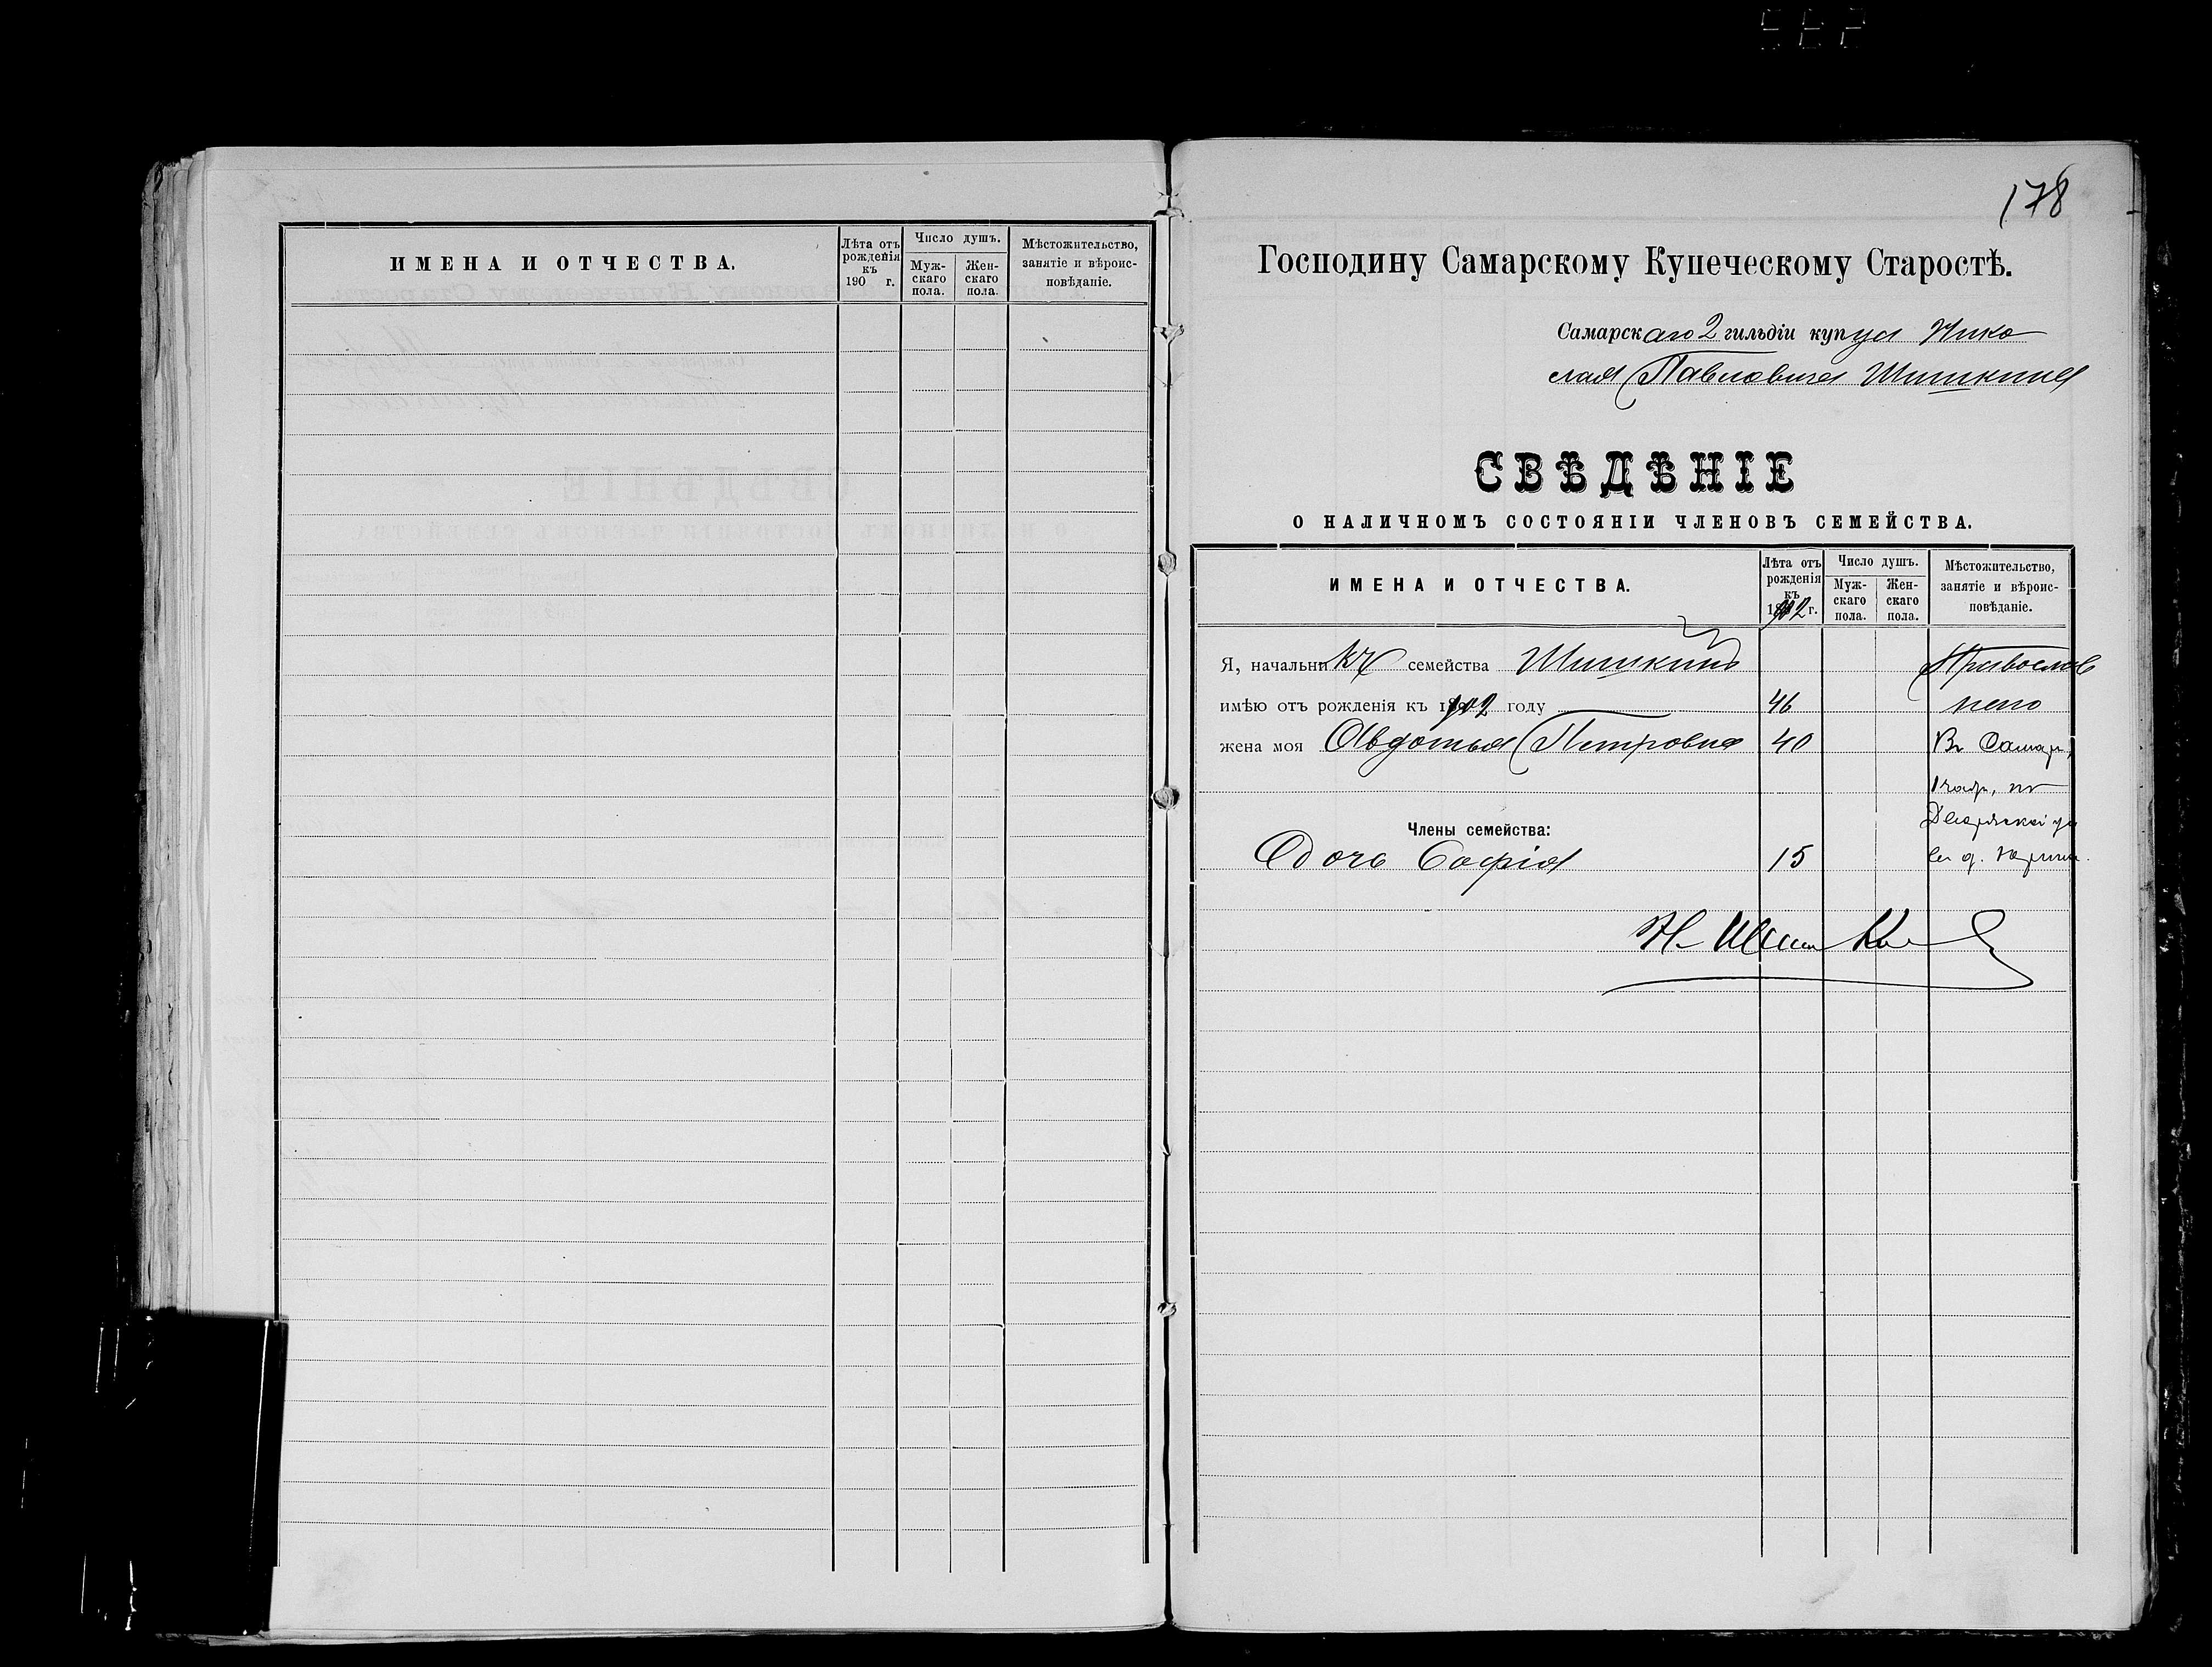 ИМЕНА И ОТЧЕСТВА.
Лѣта отъ рожденія къ 190 г.
Число душъ.
Мужскаго пола.
Женскаго пола.
Мѣстожительство, занятіе и вѣроисповѣданіе.
178
Господину Самарскому Купеческому Старостѣ.
Самарскаго 2 гильдіи купца Нико
лая Павловича Шишкина
СВѢДѢНІЕ
О НАЛИЧНОМЪ СОСТОЯНІИ ЧЛЕНОВЪ СЕМЕЙСТВА.
ИМЕНА И ОТЧЕСТВА.
Лѣта отъ рожденія къ 1902 г.
Число душъ.
Муж-
скаго
пола.
Жен-
скаго
пола.
Мѣстожительство,
занятіе и вѣроис-
повѣданіе.
Я, начальникъ семейства Шишкинъ Православ
имѣю отъ рожденія къ 1902 году 46 наго
жена моя Авдотья Петровна 40 Въ Самарѣ,
1 части, по
Члены семейства: Дворянской ул
Дочь Софія 15 въ д.
Н. Шишкинъ